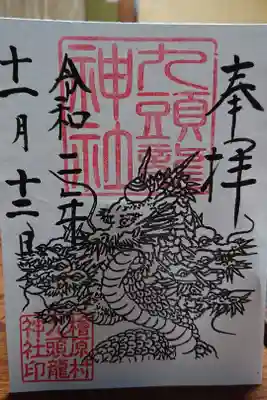 奉拝
九頭龍
神社
令和二年
十一月十二日
檜原村
九頭龍
神社印